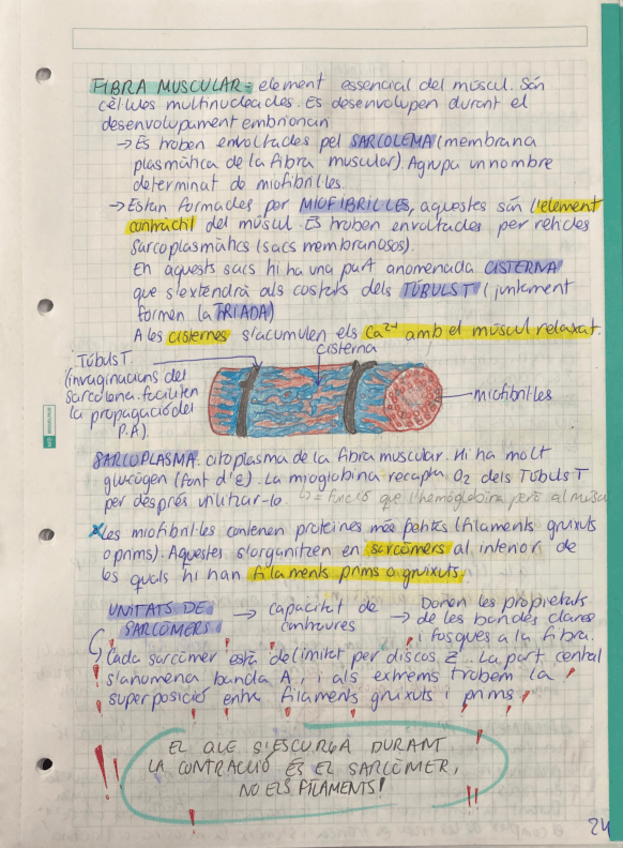 FIBRA MUSCULAR = element essencial del múscul. Són
cèl·lules multinucleades. Es desenvolupen durant el
desenvolupament embrionari
→ Es troben envoltades pel SARCOLEMA (membrana
plasmàtica de la fibra muscular). Agrupa un nombre
determinat de miofibril·les.
→ Estan formades per MIOFIBRIL·LES, aquestes són l'element
contràctil del múscul. Es troben envoltades per reticles
sarcoplasmàtics (sacs membranosos).
En aquests sacs hi ha una part anomenada CISTERNA
que s'extendrà als costats dels TÚBULS T (juntament
formen la TRÍADA)
A les cisternes s'acumulen els Ca²⁺ amb el múscul relaxat.
TúbulsT.
(invaginacions del
sarcolema. faciliten
la propagació del
P.A).
cisterna
miofibril·les
SARCOPLASMA. citoplasma de la fibra muscular. Hi ha molt
glucògen (font d'e). La mioglobina recapta O₂ dels Túbuls T
per després utilitzar-lo. ↳ = funció que l'hemoglobina però al múscul
*Les miofibril·les contenen proteïnes més petites (filaments gruixuts
o prims). Aquestes s'organitzen en sarcòmers al interior, de
los quals hi han filaments prims o gruixuts.
UNITATS DE
SARCÒMERS
→ capacitat de
contraures
→ Donen les propietats
de les bandes clares
i fosques a la fibra.
↳ Cada sarcòmer està delimitat per discos Z. La part central
s'anomena banda A, i als extrems trobem la
superposició entre filaments gruixuts i prims.
EL QUE S'ESCURÇA DURANT
LA CONTRACCIÓ ÉS EL SARCÒMER,
NO ELS FILAMENTS!
24